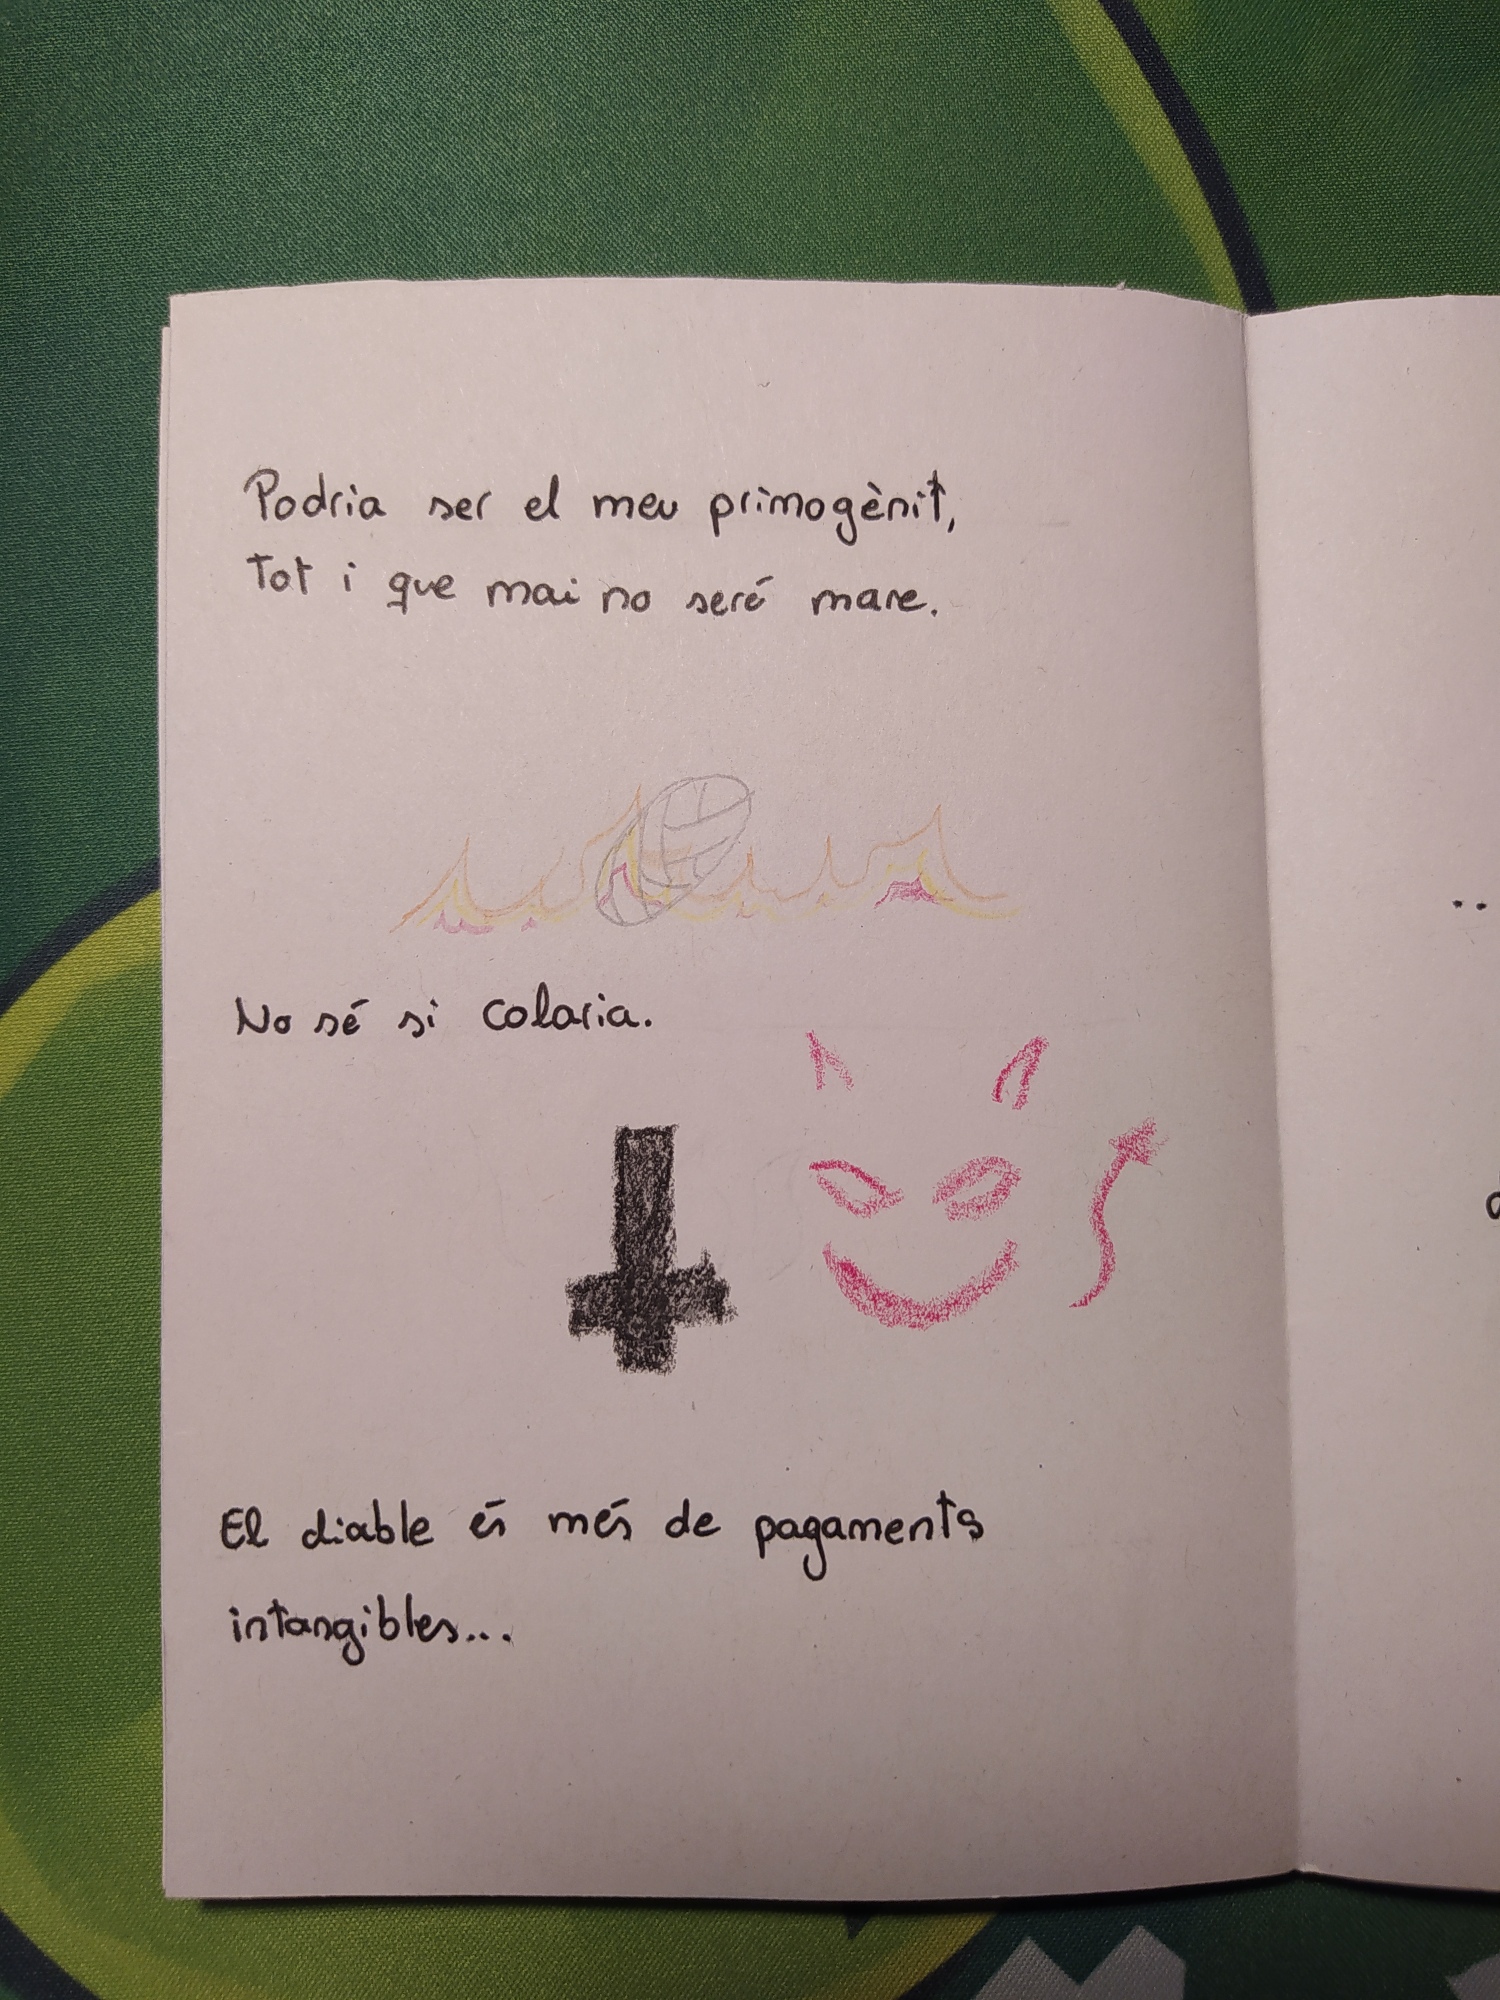 Podria ser el meu primogènit,
tot i que mai no seré mare.
No sé si colaria.
El diable és més de pagaments
intangibles...
..